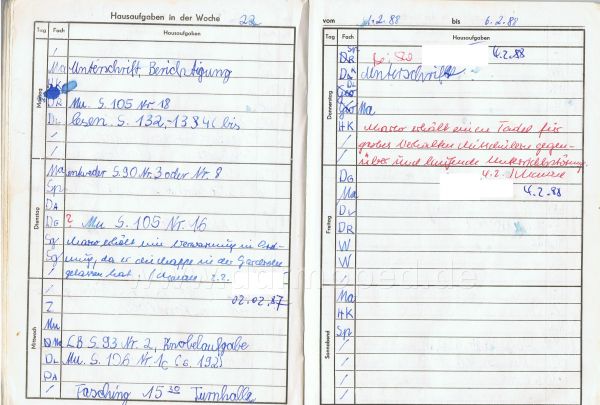 Hausaufgaben in der Woche 22
Tag Fach Hausaufgaben
Montag
/
Ma Unterschrift, Berichtigung
HK
DR Mu. S. 105 Nr. 18
DL lesen S. 132,-133 bis
/
Dienstag
Ma entweder S.90 Nr.3 oder Nr. 8
Sp
DA
DG ? Mu S. 105 Nr. 16
Sg Marco erhält eine Verwarnung in Ord-
Sg nung, da er die Mappe in der Garderobe
/ gelassen hat.
Mittwoch
/ 02.02.87
Z
Mu
Ma LB S. 93 Nr. 2, Knobelaufgabe
DL Mu. S. 106 Nr. 1c (S. 192)
DA
/ Fasching 15 30 Turnhalle
vom 1.2.88 bis 6.2.88
Tag Fach Hausaufgaben
Donnerstag
Sp 4.2.88
DR
Unterschrift
Ma
HK Marco erhält einen Tadel für
/ grobes Verhalten Mitschülern gegen-
/ über und laufende Unterrichtsstörung
/ 4.2.
Freitag
DG
Ma 4.2.88
DL
DR
W
W
/
Sonnabend
Ma
HK
Sp
/
/
/
www.ddrmoped.de